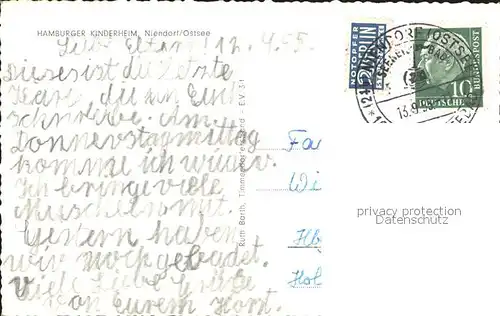 HAMBURGER KINDERHEIM, Niendorf/Ostsee
Liebe Eltern! 12. 9. 55.
Dieses ist die letzte
Karte die ich Euch
schreibe. Am
Donnerstagmittag
komme ich wieder.
Ich bringe viele
Muscheln mit.
Gestern haben
wir noch gebadet.
Viele liebe Grüße
an Eurem Horst.
Ruth Barth, Timmendorfer Strand
EV 31
NOTOPFER
2 BERLIN
STEUERMARKE
NIENDORF (OSTSEE)
13.9.55
10
DEUTSCHE BUNDESPOST
Fa
Wi
Hb
Hol
privacy protection
Datenschutz